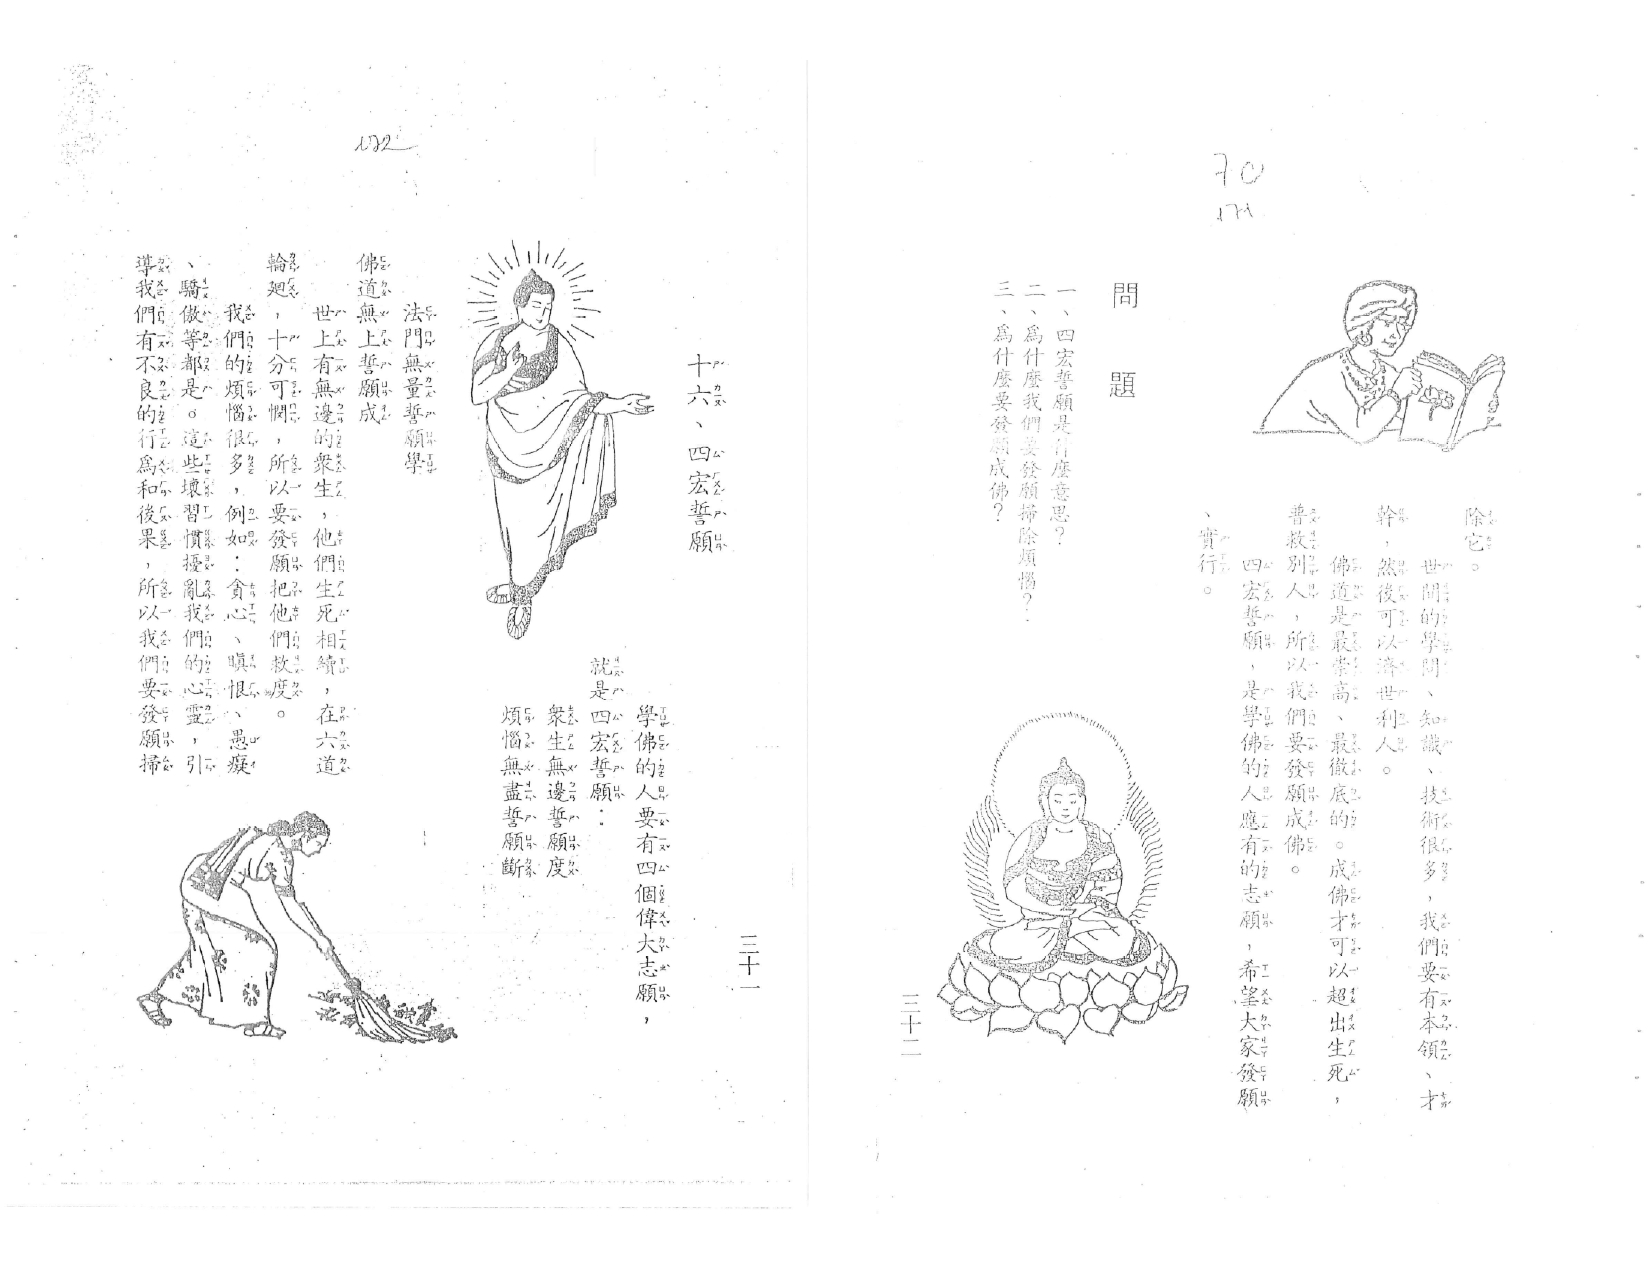 172
三十一
十六、四宏誓願
學佛的人要有四個偉大志願，
就是四宏誓願：
衆生無邊誓願度
煩惱無盡誓願斷
法門無量誓願學
佛道無上誓願成
世上有無邊的衆生，他們生死相續，在六道
輪廻，十分可憫，所以要發願把他們救度。
我們的煩惱很多，例如：貪心、瞋恨、愚癡
、驕傲等都是。這些壞習慣擾亂我們的心靈，引
導我們有不良的行爲和後果，所以我們要發願掃
70
171
除它。
世間的學問、知識、技術很多，我們要有本領、才
幹，然後可以濟世利人。
佛道是最崇高、最徹底的。成佛才可以超出生死，
普救別人，所以我們要發願成佛。
四宏誓願，是學佛的人應有的志願，希望大家發願
、實行。
問題
一、四宏誓願是什麼意思？
二、爲什麼我們要發願掃除煩惱？
三、爲什麼要發願成佛？
三十二